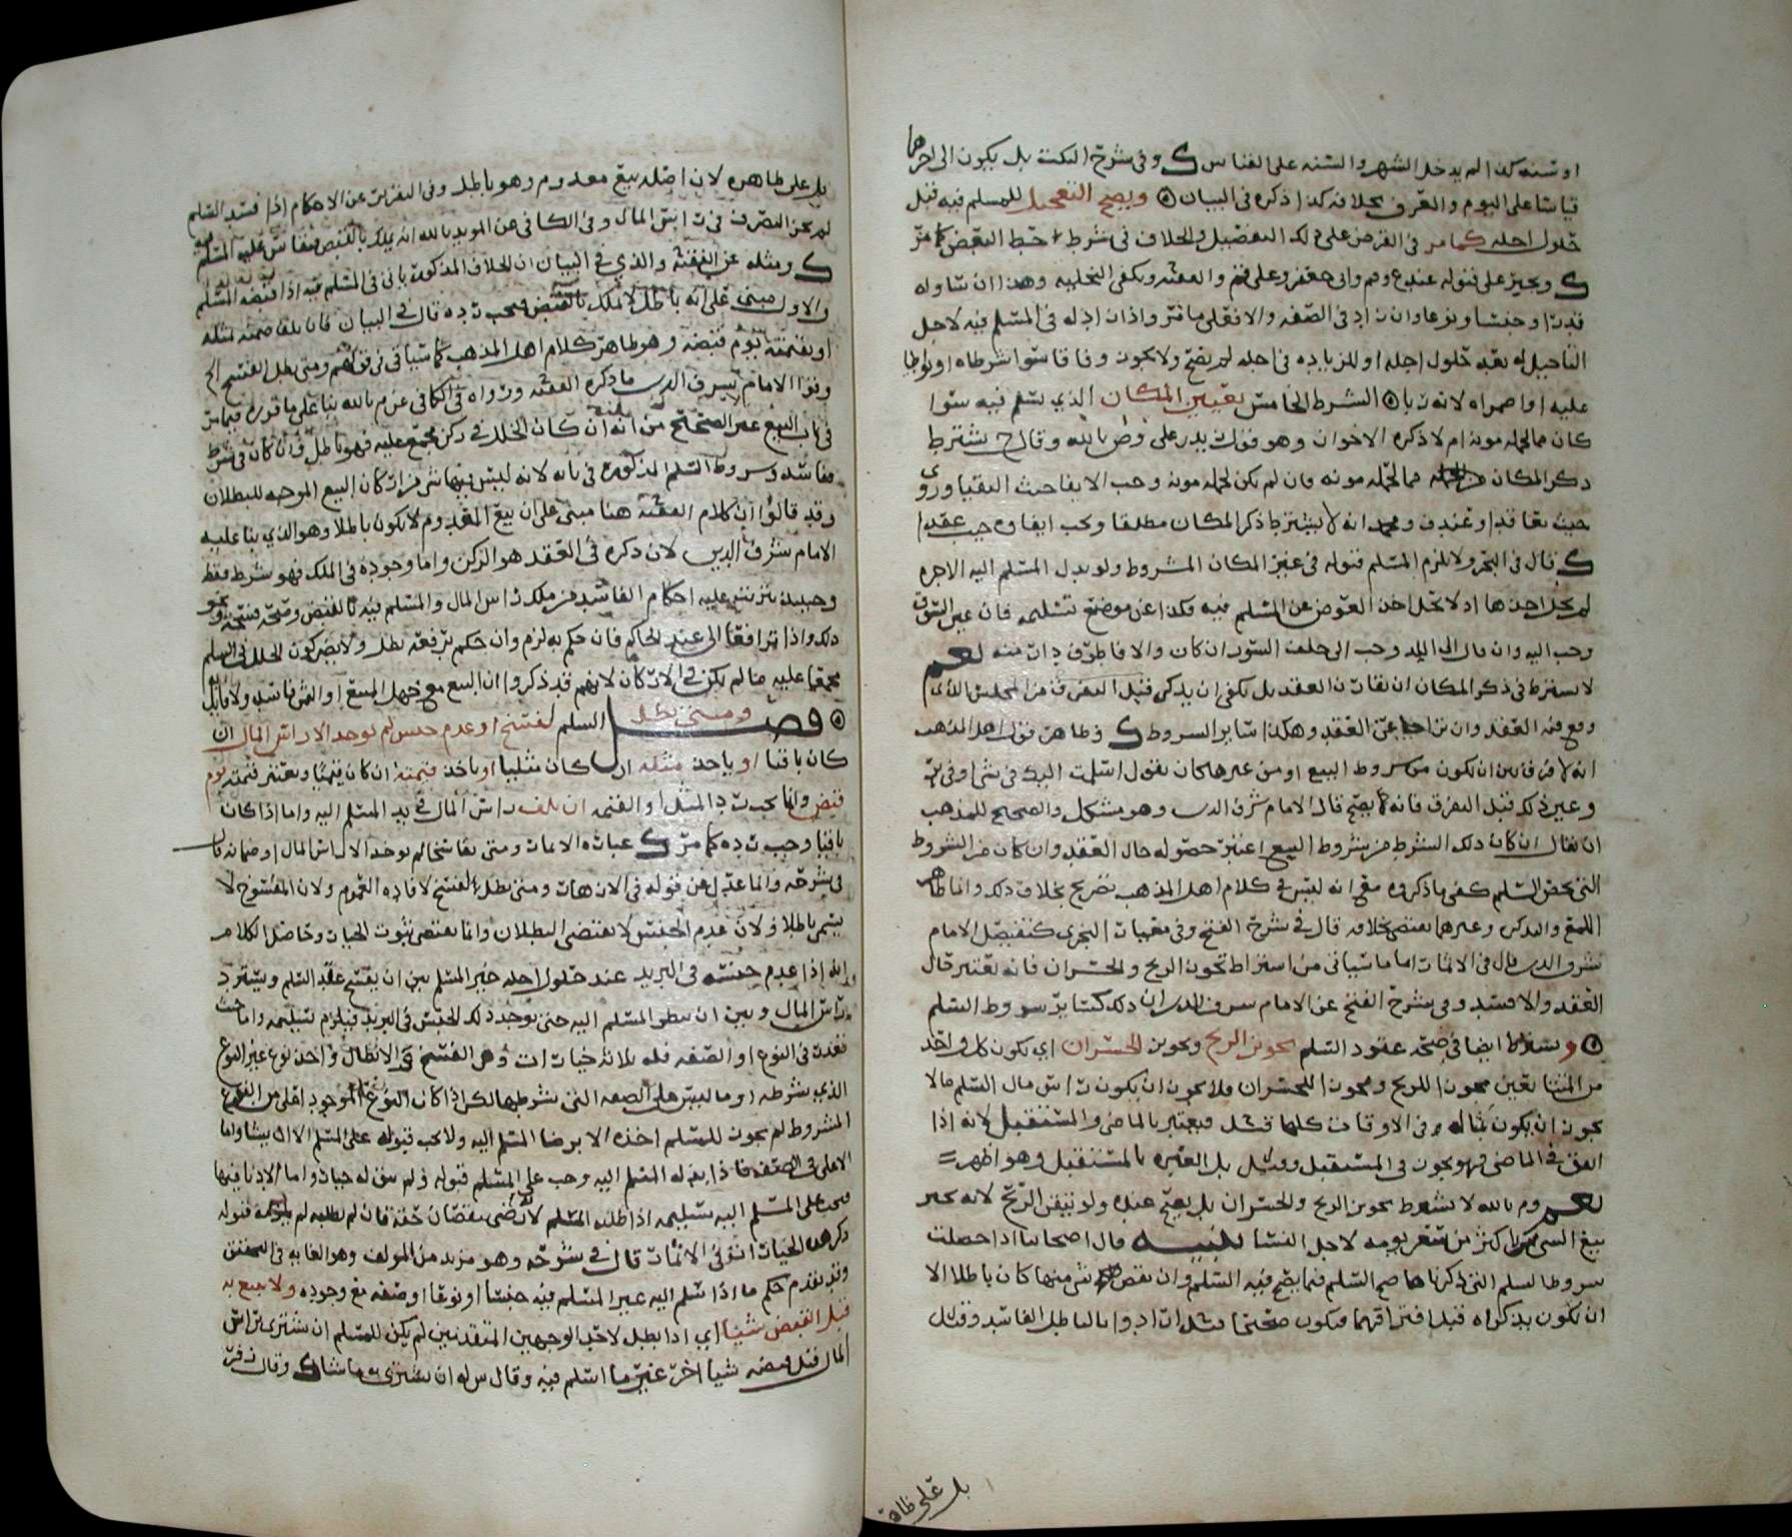 او سنه كذا لم يدخل الشهر والسنه على القياس ك وفى شرح النكت بل يكون الى اخرها
قياسا على اليوم والعرف بخلافه كذا ذكره فى البيان ويصح التعجيل للمسلم فيه قبل
حلول اجله كما مر فى القرض على ذلك التفصيل والخلاف فى شرط حط البعض كما مر
ك ويجبر على قبوله عند وعلى قم والفقيه وتكفى التخليه وهذا ان ساواه
قدرا وجنسا ونوعا وان زاد فى الصفه والا فعلى ما مر واذا زاد له فى المسلم فيه لاجل
التاجيل له بعد حلول اجله او للزياده فى اجله لم يصح ولا يجوز وفاقا سوا شرطاه او تواطيا
عليه او اضمراه لانه ربا الشرط الخامس تعيين المكان الذي يسلم فيه سوا
كان مما لحمله مونه ام لا ذكره الاخوان وهو قول زيد بن على وض بالله وقال ح يشترط
ذكر المكان فيما لحمله مونه فان لم يكن لحمله مونه وجب الايفا حيث التقيا وروى
حيث تعاقدا وعند ف ومحمد انه لا يشترط ذكر المكان مطلقا ويجب ايفاوه حيث عقدا
ك قال فى البحر ولا يلزم المسلم قبوله فى غير المكان المشروط ولو بذل المسلم اليه الاجره
لم يحل اخذها اذ لا يحل اخذ العوض عن المسلم فيه فكذا عن موضع تسليمه فان عين السوق
وجب اليه وان قال الى البلد وجب الى خلف السور ان كان والا فاطرف دار منه نعم
لا يشترط فى ذكر المكان ان يقارن العقد بل يكفى ان يذكر قبل التفرق من المجلس الذي
وقع فيه العقد وان تراخا عن العقد وهكذا سائر الشروط ك وظاهر قول اهل المذهب
انه لا فرق بين ان تكون من شروط البيع او من غيرها كان يقول اسلمت اليك فى شى او فى بر
وعين ذلك قبل التفرق فانه لا يصح قال الامام شرف الدين وهو مشكل والصحيح للمذهب
ان يقال ان كان ذلك الشرط من شروط البيع اعتبر حصوله حال العقد وان كان من الشروط
التى تخص السلم كفى ما ذكروه مع انه ليس فى كلام اهل المذهب تصريح بخلاف ذلك وانما ظاهر
اللمع والتذكره وغيرهما يقتضى خلافه قال فى شرح الفتح وفى تعليقات النجرى كتفصيل الامام
شرف الدين قال فى الاثمات اما ما سياتى من اشتراط تجويز الربح والخسران فانه يعتبر حال
العقد والا فسد وفى شرح الفتح عن الامام شرف الدين ان ذلك كسائر شروط السلم
ويشترط ايضا فى صحه عقود السلم تجويز الربح وتجويز الخسران اي يكون كل واحد
من الثمنين مجوزا للربح ومجوزا للخسران فلا يجوز ان يكون راس مال السلم مالا
يجوز ان يكون بثاله فى الاوقات كلها قيل فيعتبر بالماضى والمستقبل لانه اذا
اتفق فى الماضى فهو يجوز فى المستقبل وقيل بل العبره بالمستقبل وهو اظهر
نعم وم بالله لا يشترط تجويز الربح والخسران بل يصح عنده ولو تيقن الربح لانه يجيز
بيع الشى باكثر من سعر يومه لاجل النسا تنبيه قال اصحابنا اذا حصلت
شروط السلم التى ذكرناها صح السلم فيما يصح فيه السلم وان نقص شى منها كان باطلا الا
ان تكون يذكراه قبل افتراقهما فيكون صحيحا قيل ارادوا بالباطل الفاسد وقيل
بل على ظاهره
بل على ظاهره لان اصله بيع معدوم وهو باطل وفى التقرير عن الاحكام اذا فسد السلم
لم يجز التصرف فى راس المال وفى الكافى عن المويد بالله انه يملك بالقبض فقاس عليه المسلم فيه
ك ومثله عن الفقيه والذي فى البيان ان الخلاف المذكور ياتى فى المسلم فيه اذا قبضه المسلم
والاول مبنى على انه باطل لا يملك بالقبض فيجب رده قال فى البيان فان تلف ضمنه بمثله
او بقيمته يوم قبضه وهو ظاهر كلام اهل المذهب كما سياتى فى قولهم ومتى بطل لفسخ الخ
وقوا الامام شرف الدين ما ذكره الفقيه ورواه فى الكافى عن م بالله بنا على ما قرره فيما مر
فى باب البيع غير الصحيح من انه ان كان الخلل فى ركن مجمع عليه فهو باطل وان كان فى شرط
ففاسد وشروط السلم المذكوره فى بابه لانه ليس فيها شى من اركان البيع الموجبه للبطلان
وقد قالوا ان كلام الفقيه هنا مبنى على ان بيع المعدوم لا يكون باطلا وهو الذي بنا عليه
الامام شرف الدين لان ذكره فى العقد هو الركن واما وجوده فى الملك فهو شرط فقط
وحينئذ يترتب عليه احكام الفاسد من ملك راس المال والمسلم فيه بالقبض وصحه فسخه ونحو
ذلك واذا ترافعا الى عند الحاكم فان حكم به لزم وان حكم برفعه بطل ولا يضر كون الخلل فى السلم
مجمعا عليه ما لم يكن فى الاركان لانهم قد ذكروا ان البيع مع جهل المبيع او الثمن فاسد ولا قائل
فصل ومتى بطل السلم لفسخ او عدم جنس لم يوخذ الا راس المال ان
كان باقيا او ياخذ مثله ان كان مثليا او ياخذ قيمته ان كان قيميا وتعتبر قيمته يوم
قبض وانما يجب رد المثل او القيمه ان تلف راس المال فى يد المسلم اليه واما اذا كان
باقيا وجب رده كما مر ك عباره الاثمات ومتى تفاسخا لم يوخذ الا راس المال او ضمانه قال
فى شرحه وانما عدل عن قوله فى الازهار ومتى بطل لفسخ لافاده العموم ولان المفسوخ لا
يسمى باطلا ولان عدم الجنس لا يقتضى البطلان وانما يقتضى ثبوت الخيار وحاصل الكلام
انه اذا عدم جنسه فى البريد عند حلول اجله خير المسلم بين ان يفسخ عقد السلم ويسترد
راس المال وبين ان ينظر المسلم اليه حتى يوجد ذلك الجنس فى البريد فيلزم تسليمه واما حيث
تعذر فى النوع او الصفه فله ثلاثه خيارات وهى الفسخ او الانظار او اخذ نوع غير النوع
الذي شرطه او ما ليس على الصفه التى شرطها لكن اذا كان النوع الموجود اعلى من النوع
المشروط لم يجز للمسلم اخذه الا برضا المسلم اليه ولا يجب قبوله على المسلم الا ان يشا واما
الاعلى فى الصفه فاذا بذله المسلم اليه وجب على المسلم قبوله ولم يبق له خيار واما الادنا فيها
فيجب على المسلم اليه تسليمه اذا طلبه المسلم لانه رضى بنقصان حقه فان لم يطلبه لم يلزمه قبوله
ذكر هذه الخيارات فى الاثمات قال فى شرحه وهو مزيد من المولف وهو الغايه فى التحقيق
وقد تقدم حكم ما اذا سلم اليه غير المسلم فيه جنسا او نوعا او صفه مع وجوده ولا يبيع به
قبل القبض شيئا اي اذا بطل لاحد الوجهين المتقدمين لم يكن للمسلم ان يشترى براس
المال قبل قبضه شيا اخر غير ما اسلم فيه وقال س له ان يشترى به ما شا ك وقال زفر